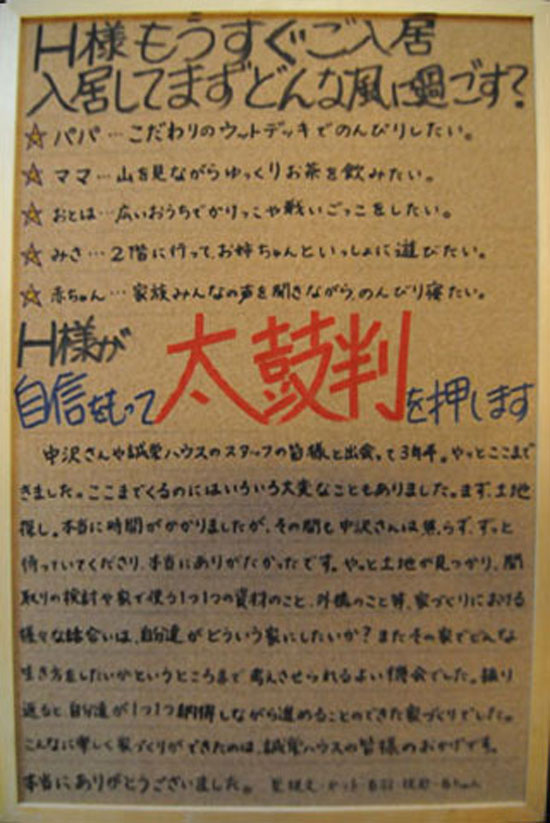 H様もうすぐご入居
入居してまずどんな風に過ごす?
☆ パパ…こだわりのウットデッキでのんびりしたい。
☆ ママ…山を見ながらゆっくりお茶を飲みたい。
☆ おとは…広いおうちでかけっこや戦いごっこをしたい。
☆ みさ…2階に行って、お姉ちゃんといっしょに遊びたい。
☆ 赤ちゃん…家族みんなの声を聞きながら、のんびり寝たい。
H様が
自信をもって太鼓判を押します
中沢さんや誠栄ハウスのスタッフの皆様と出会って3年半。やっとここまで
きました。ここまでくるのにはいろいろ大変なこともありました。まず、土地
探し。本当に時間がかかりましたが、その間も中沢さんは焦らず、ずっと
待っていてくださり、本当にありがたかったです。やっと土地が見つかり、間
取りの検討や家で使う1つ1つの資材のこと、外構のこと等、家づくりにおける
様々な話合いは、自分達がどういう家にしたいか?またその家でどんな
生き方をしたいかというところまで考えさせられるよい機会でした。振り
返ると、自分達が1つ1つ納得しながら進めることのできた家づくりでした。
こんなに楽しく家づくりができたのは、誠栄ハウスの皆様のおかげです。
本当にありがとうございました。